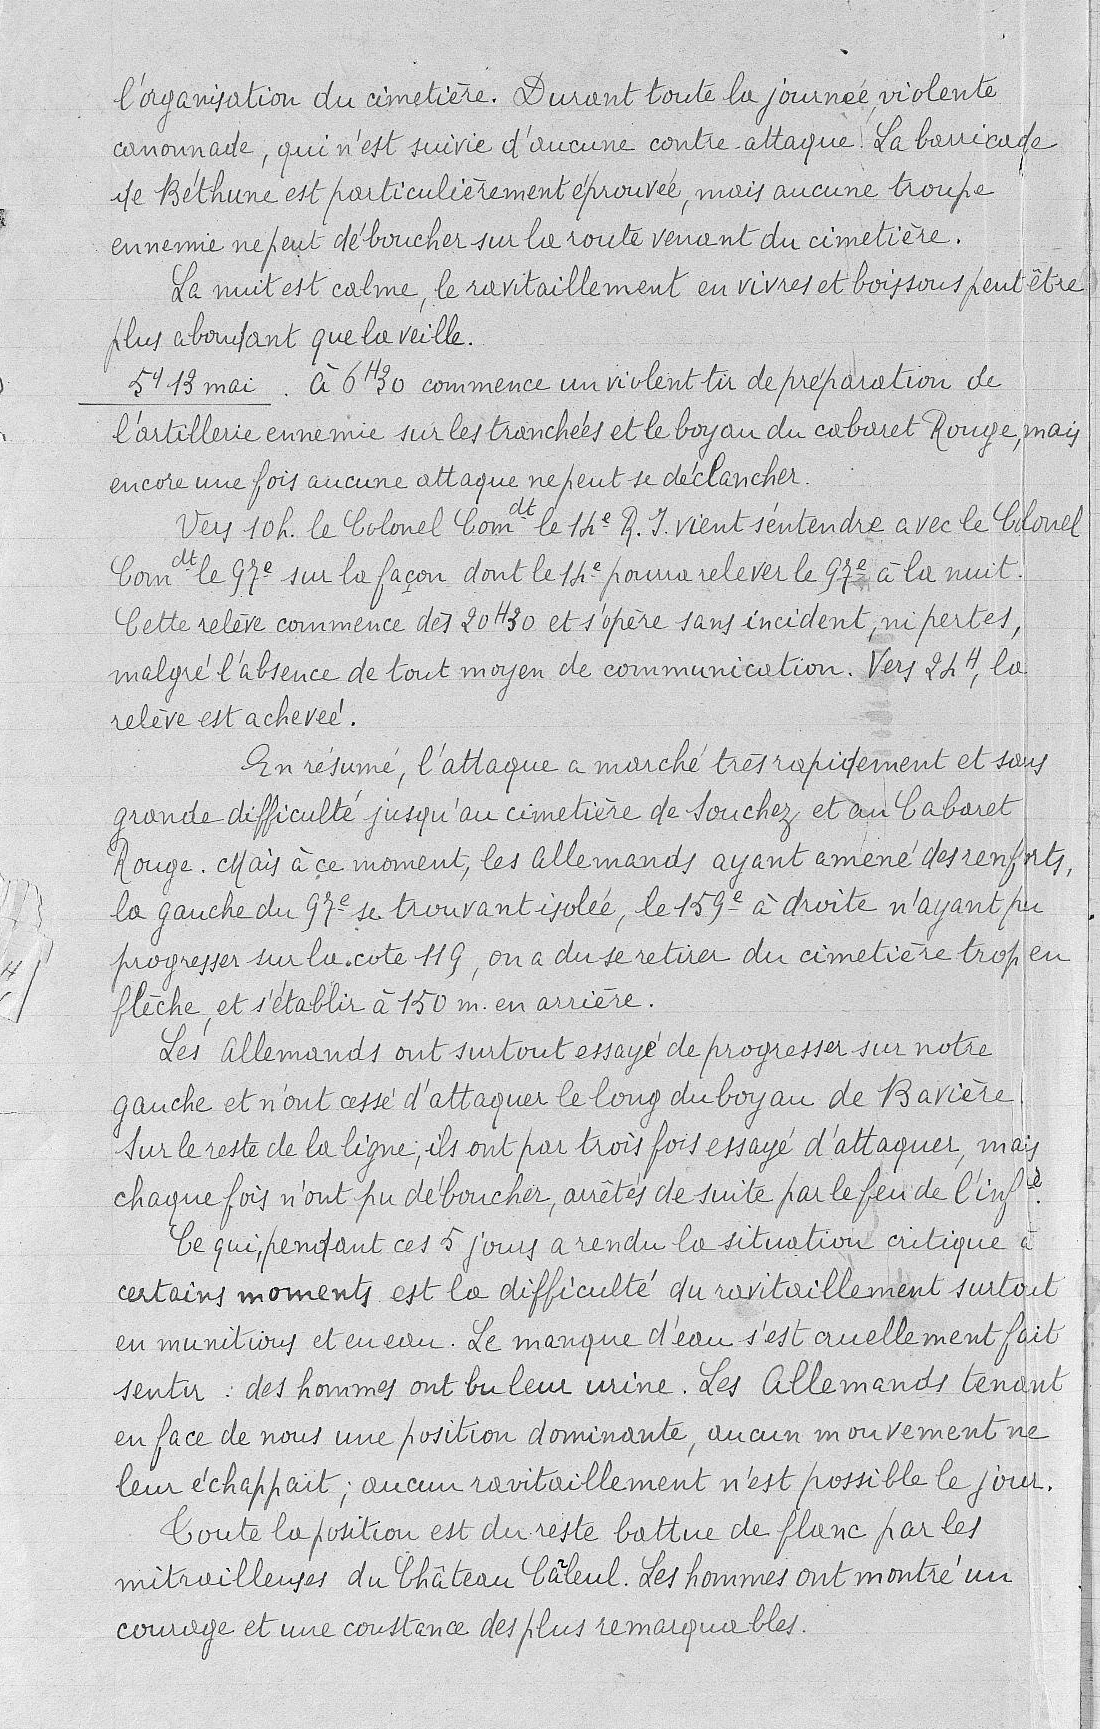 l'organisation du cimetière. Durant toute la journée, violente
canonnade, qui n'est suivie d'aucune contre-attaque. La barricade
de Béthune est particulièrement éprouvée, mais aucune troupe
ennemie ne peut déboucher sur la route venant du cimetière.
La nuit est calme, le ravitaillement en vivres et boissons peut être
plus abondant que la veille.
13 mai. à 6H30 commence un violent tir de préparation de
l'artillerie ennemie sur les tranchées et le boyau du cabaret Rouge, mais
encore une fois aucune attaque ne peut se déclancher.
Vers 10h. le Colonel Comdt le 14e R.I. vient s'entendre avec le Colonel
Comdt le 97e sur la façon dont le 14e pourra relever le 97e à la nuit.
Cette relève commence dès 20H30 et s'opère sans incident, ni pertes,
malgré l'absence de tout moyen de communication. Vers 24H, la
relève est achevée.
En résumé, l'attaque a marché très rapidement et sans
grande difficulté jusqu'au cimetière de Souchez et au Cabaret
Rouge. Mais à ce moment, les Allemands ayant amené des renforts,
la gauche du 97e se trouvant isolée, le 159e à droite n'ayant pu
progresser sur la cote 119, on a du se retirer du cimetière trop en
flèche, et s'établir à 150 m. en arrière.
Les Allemands ont surtout essayé de progresser sur notre
gauche et n'ont cessé d'attaquer le long du boyau de Bavière.
Sur le reste de la ligne, ils ont par trois fois essayé d'attaquer, mais
chaque fois n'ont pu déboucher, arrêtés de suite par le feu de l'infie.
Ce qui, pendant ces 5 jours a rendu la situation critique à
certains moments est la difficulté du ravitaillement surtout
en munitions et en eau. Le manque d'eau s'est cruellement fait
sentir : des hommes ont bu leur urine. Les Allemands tenant
en face de nous une position dominante, aucun mouvement ne
leur échappait ; aucun ravitaillement n'est possible le jour.
Toute la position est du reste battue de flanc par les
mitrailleuses du Château Carleul. Les hommes ont montré un
courage et une constance des plus remarquables.